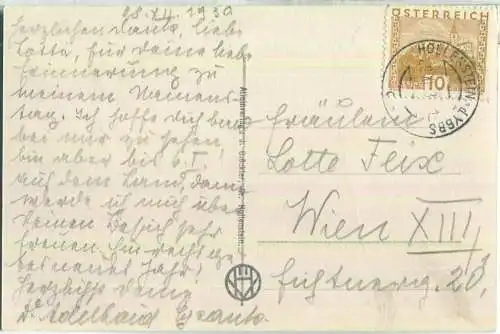 28.XII.1930
Herzlichen Dank, liebe
Lotte, für deine liebe
Erinnerung zu
meinem Namens-
tag. Ich hoffe dich bald
bei mir zu sehen,
bin aber bis 6.I.
auf dem Land, dann
werde ich mich über
deinen Besuch sehr
freuen. Ein recht gu-
tes neues Jahr!
Herzlichst deine
Adelheid
ÖSTERREICH
10
HOLLENSTEIN a.d. YBBS
Fräulein
Lotte Feix
Wien XIII/
20